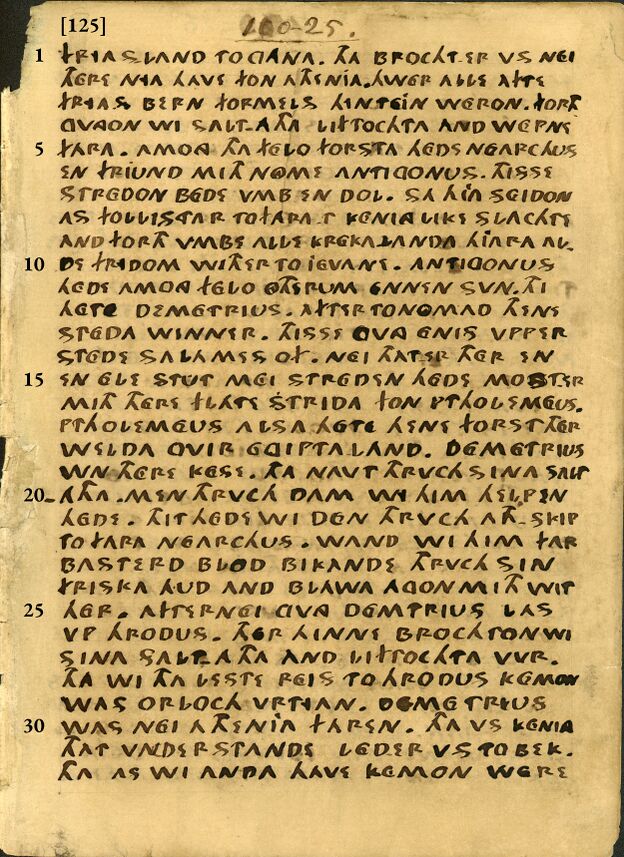 [125] 100-25.
1 FRIASLAND TO GANA. THA BROCHT-ER VS NEI
THERE NIA HAVE FON ATHENIA. HWER ALLE AFTE
FRIAS BERN FORMELS HINTHEIN WERON. FORTH
GVNGON WI SALT-ATHA LIFTOCHTA AND WEPNE
5 FARA. AMONG THA FELO FORSTA HEDE NEARCHUS
EN FRIUND MITH NOME ANTIGONUS. THISSE
STREDON BEDE VMB EN DOL. SA HIA SEIDON
AS FOLLISTAR TO FARA-T KENIALIKE SLACHTE
AND FORTH VMBE ALLE KREKA-LANDA HIARA AL-
10 DE FRIDOM WITHER TO JEVANE. ANTIGONUS
HEDE AMONG FELO OTHERUM ENNEN SVN. THI
HETE DEMETRIUS. AFTER TONOMAD THENE
STEDA WINNER. THISSE GVNG ENIS VPPER
STEDE SALAMIS OF. NEI THATER THER EN
15 EN ELE STUT MEI STREDEN HEDE MOSTER
MITH THERE FLATE STRIDA FON PTHOLEMEUS.
PTHOLEMEUS ALSA HETE THENE FORST THER
WELDA OVIR EGIPTALAND. DEMETRIUS
WN THERE KESE. THA NAVT THRVCH SINA SALT
20 -ATHA. MEN THRVCH DAM WI HIM HELPEN
HEDE. THIT HEDE WI DEN THRVCH ATH-SKIP
TO FARA NEARCHUS. WAND WI HIM FAR
BASTERD BLOD BIKANDE THRVCH SIN
FRISKA HUD AND BLAWA AGON MITH WIT
25 HER. AFTERNEI GVNG DEMTRIUS LAS
VP HRODUS. THER HINNE BROCHTON WI
SINA SALT-ATHA AND LIFTOCHTA VVR.
THA WI THA LESTE REIS TO HRODUS KEMON
WAS ORLOCH VRTIAN. DEMETRIUS
30 WAS NEI ATHENIA FAREN. THA VS KENIA
THAT VNDERSTANDE LEDER VS TO BEK.
THA AS WI ANDA HAVE KEMON WERE